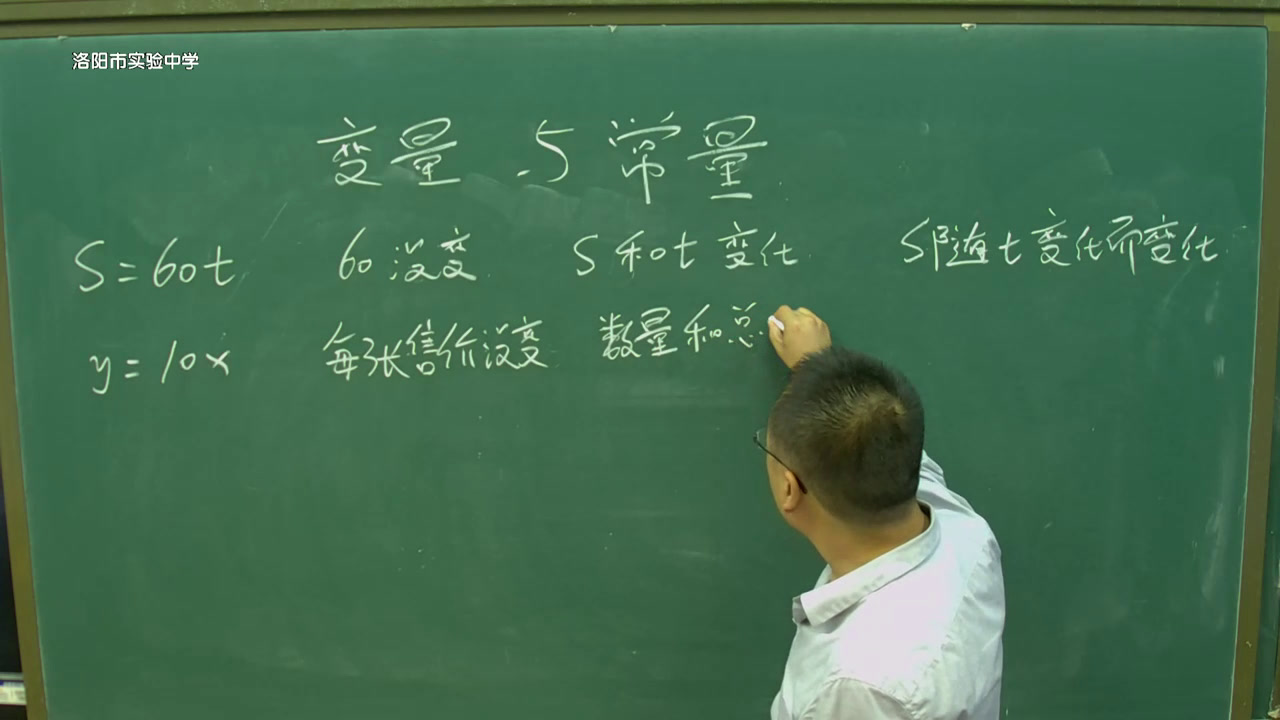 洛阳市实验中学
变量与常量
S=60t 60没变 S和t变化 S随t变化而变化
y=10x 每张售价没变 数量和总